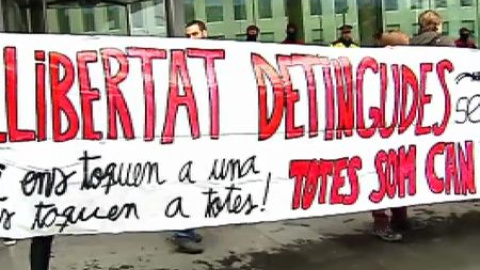 LLIBERTAT DETINGUDES
ens toquen a una
toquen a totes!
TOTES SOM CAN